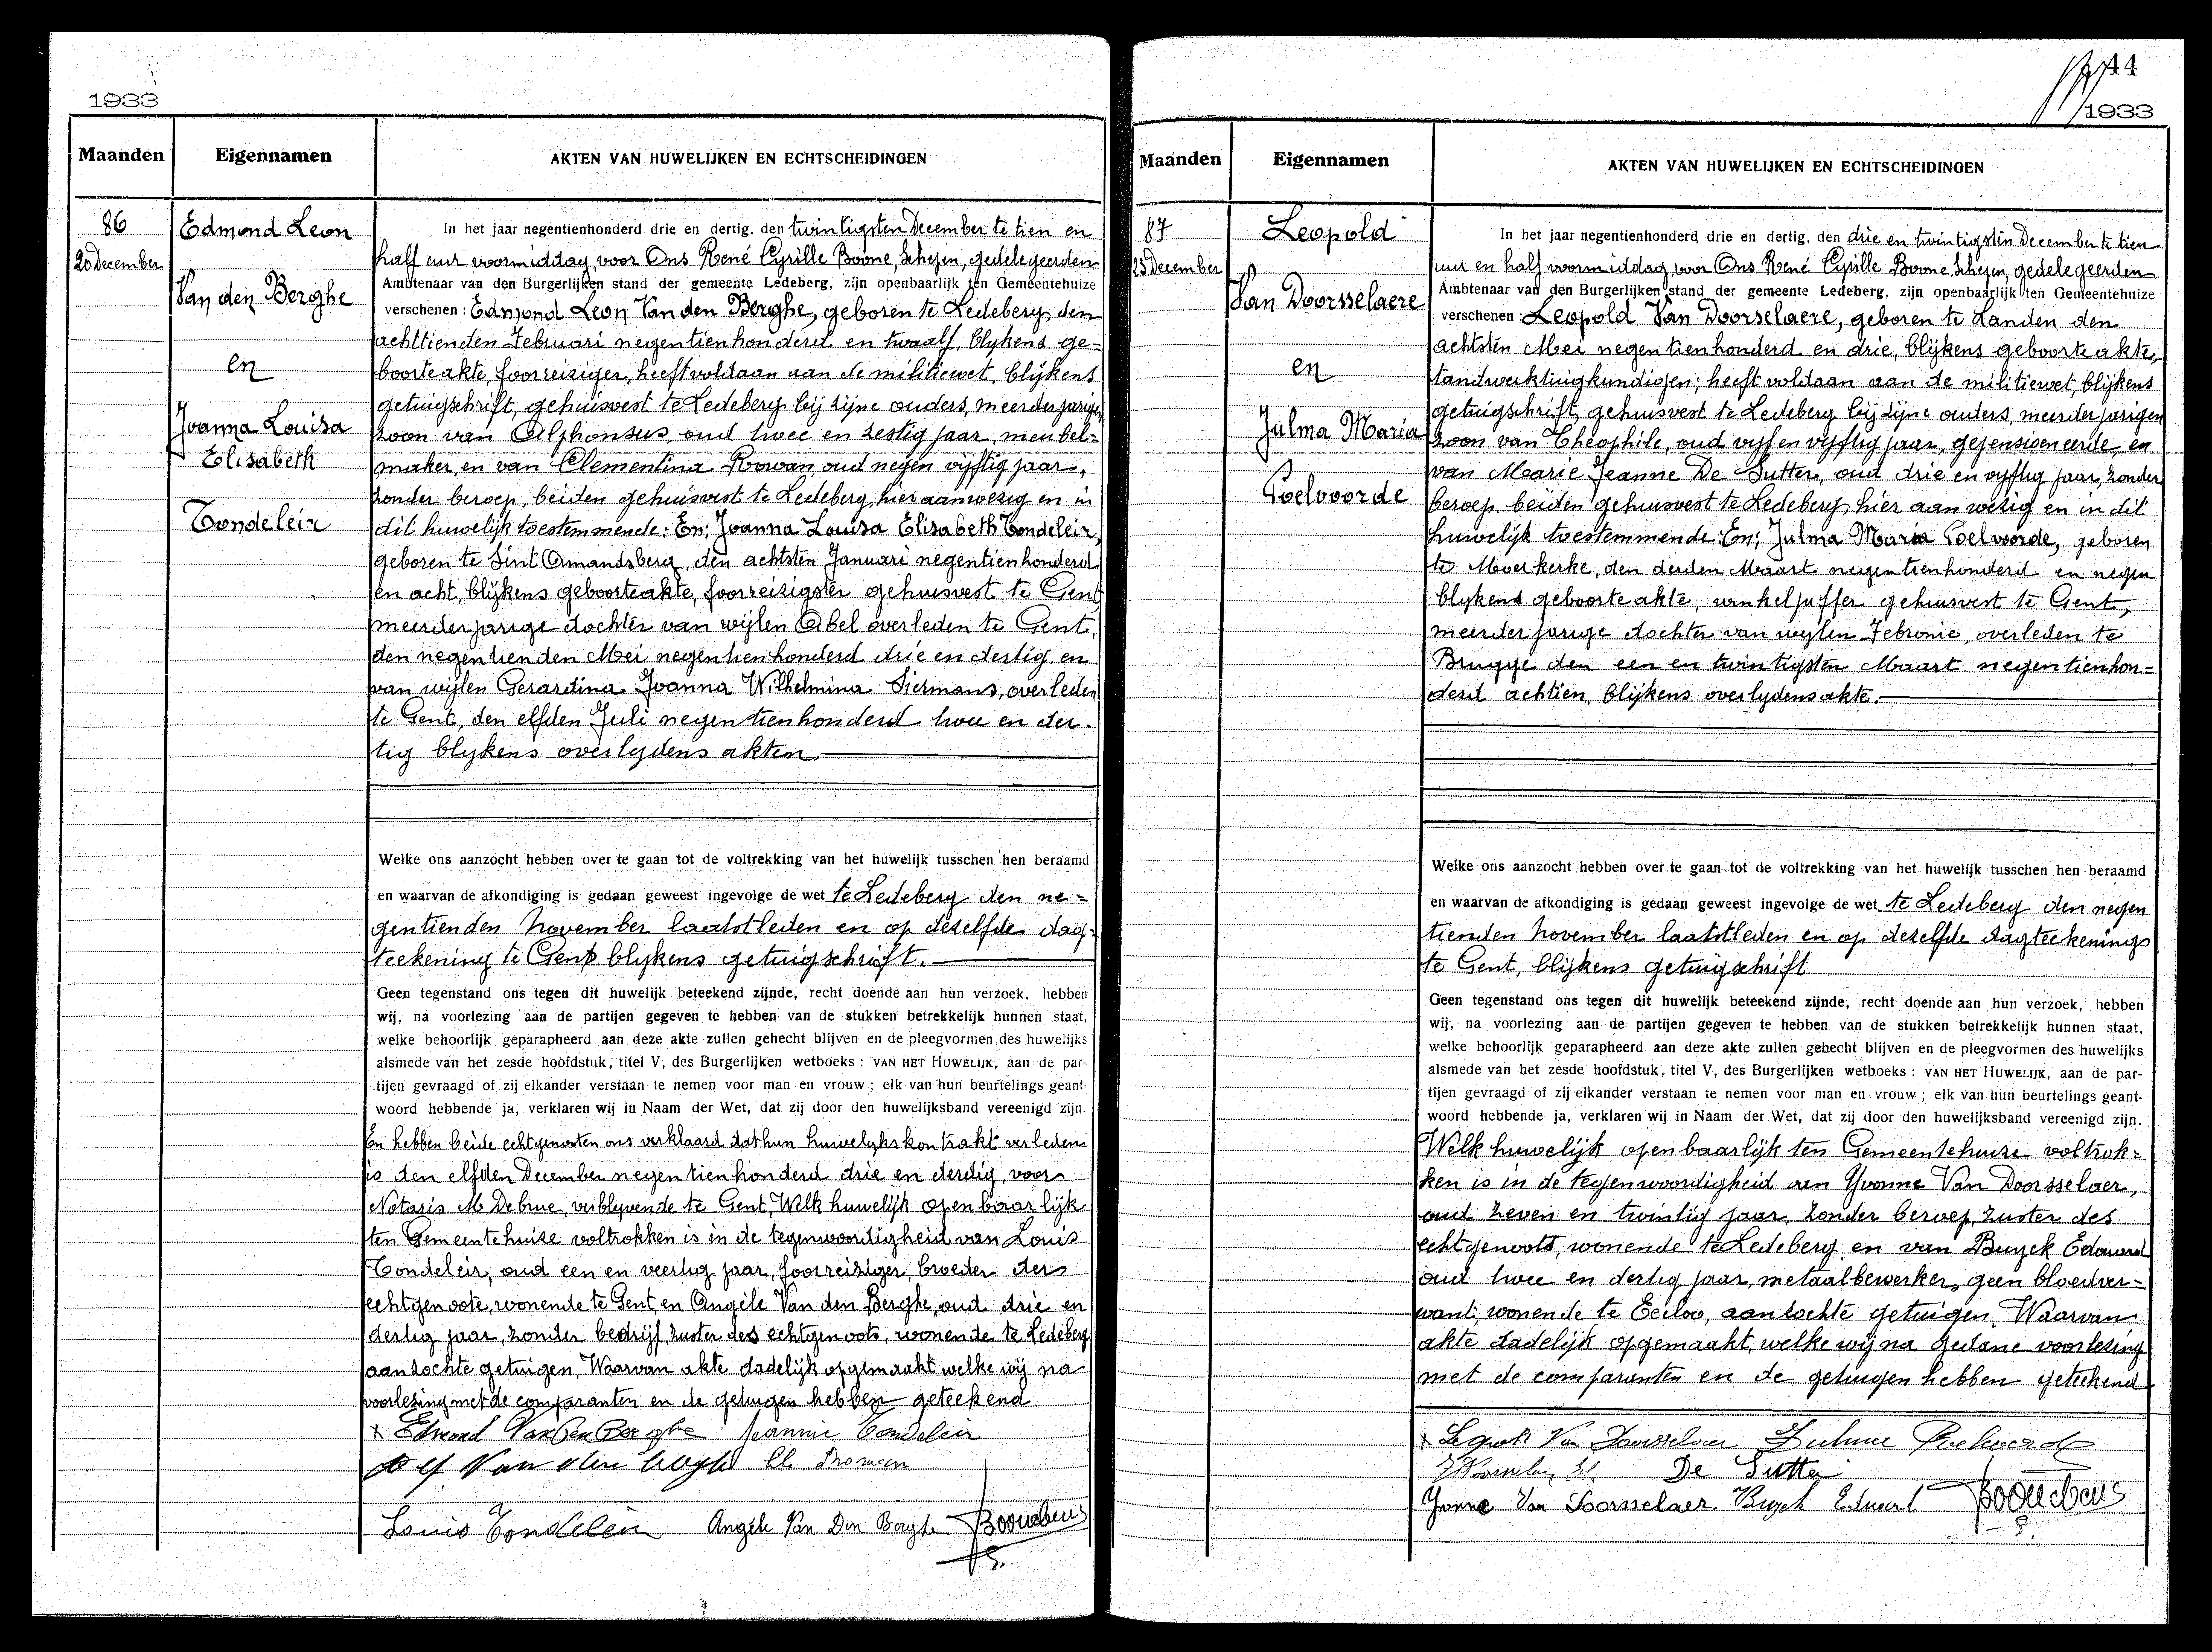 1933
Maanden Eigennamen AKTEN VAN HUWELIJKEN EN ECHTSCHEIDINGEN
86
20 December
Edmond Leon
Van den Berghe
en
Joanna Louisa
Elisabeth
Tondeleir
In het jaar negentienhonderd drie en dertig, den twintigsten December te tien en
half uur voormiddag, voor Ons René Cyrille Boone, Schepen, gedelegeerden
Ambtenaar van den Burgerlijken stand der gemeente Ledeberg, zijn openbaarlijk ten Gemeentehuize
verschenen : Edmond Leon Van den Berghe, geboren te Ledeberg, den
achttienden Februari negentienhonderd en twaalf, blijkens ge=
boorteakte, foorreiziger, heeft voldaan aan de militiewet, blijkens
getuigschrift, gehuisvest te Ledeberg bij zijne ouders, meerderjarigen
zoon van Alphonsus, oud twee en zestig jaar, meubel=
maker, en van Clementina Rowan, oud negen vijftig jaar,
zonder beroep, beiden gehuisvest te Ledeberg, hier aanwezig en in
dit huwelijk toestemmende: En: Joanna Louisa Elisabeth Tondeleir,
geboren te Sint Amandsberg, den achtsten Januari negentienhonderd
en acht, blijkens geboorteakte, foorreizigster gehuisvest te Gent
meerderjarige dochter van wijlen Abel overleden te Gent,
den negentienden Mei negentienhonderd drie en dertig, en
van wijlen Gerardina Joanna Wilhelmina Siermans, overleden
te Gent, den elfden Juli negentienhonderd twee en der=
tig blykens overlydens akten.
Welke ons aanzocht hebben over te gaan tot de voltrekking van het huwelijk tusschen hen beraamd
en waarvan de afkondiging is gedaan geweest ingevolge de wet te Ledeberg den ne=
gentienden November laatstleden en op dezelfde dag=
teekening te Gent blykens getuigschrift.
Geen tegenstand ons tegen dit huwelijk beteekend zijnde, recht doende aan hun verzoek, hebben
wij, na voorlezing aan de partijen gegeven te hebben van de stukken betrekkelijk hunnen staat,
welke behoorlijk geparapheerd aan deze akte zullen gehecht blijven en de pleegvormen des huwelijks
alsmede van het zesde hoofdstuk, titel V, des Burgerlijken wetboeks : VAN HET HUWELIJK, aan de par-
tijen gevraagd of zij elkander verstaan te nemen voor man en vrouw ; elk van hun beurtelings geant-
woord hebbende ja, verklaren wij in Naam der Wet, dat zij door den huwelijksband vereenigd zijn.
En hebben beide echtgenooten ons verklaard dat hun huwelykskontrakt verleden
is den elfden December negentienhonderd drie en dertig, voor
Notaris M. De brue, verblyvende te Gent, Welk huwelijk openbaarlijk
ten Gemeentehuize voltrokken is in de tegenwoordigheid van Louis
Tondeleir, oud een en veertig jaar, foorreiziger, broeder der
echtgenoote, wonende te Gent, en Angèle Van den Berghe, oud drie en
dertig jaar, zonder bedrijf, zuster des echtgenoots, wonende te Ledeberg
aanzochte getuigen, Waarvan akte dadelijk opgemaakt welke wij na
voorlezing met de comparanten en de getuigen hebben geteekend
x Edmond Van Den Berghe Jeannine Tondeleir
Van den berghe
Louis Tondeleir Angèle Van Den Berghe
44
1933
Maanden Eigennamen AKTEN VAN HUWELIJKEN EN ECHTSCHEIDINGEN
87
23 December
Leopold
Van Doorsselaere
en
Julma Maria
Poelvoorde
In het jaar negentienhonderd drie en dertig, den drie en twintigsten December te tien
uur en half voormiddag, voor Ons René Cyrille Boone, Schepen, gedelegeerden
Ambtenaar van den Burgerlijken stand der gemeente Ledeberg, zijn openbaarlijk ten Gemeentehuize
verschenen : Leopold Van Doorselaere, geboren te Landen den
achtsten Mei negentienhonderd en drie, blijkens geboorteakte,
tandwerktuigkundigen; heeft voldaan aan de militiewet, blijkens
getuigschrift, gehuisvest te Ledeberg bij zijne ouders, meerderjarigen
zoon van Théophile, oud vijf en vijftig jaar, gepensioeneerde, en
van Marie Jeanne De Sutter, oud drie en vyftig jaar, zonder
beroep, beiden gehuisvest te Ledeberg, hier aanwezig en in dit
huwelijk toestemmende: En: Julma Maria Poelvoorde, geboren
te Moerkerke, den derden Maart negentienhonderd en negen
blykens geboorteakte, winkeljuffer gehuisvest te Gent,
meerderjarige dochter van wylen Febronie, overleden te
Brugge den een en twintigsten Maart negentienhon=
derd achtien, blijkens overlydensakte.
Welke ons aanzocht hebben over te gaan tot de voltrekking van het huwelijk tusschen hen beraamd
en waarvan de afkondiging is gedaan geweest ingevolge de wet te Ledeberg den negen
tienden November laatstleden en op dezelfde dagteekening
te Gent, blijkens getuigschrift
Geen tegenstand ons tegen dit huwelijk beteekend zijnde, recht doende aan hun verzoek, hebben
wij, na voorlezing aan de partijen gegeven te hebben van de stukken betrekkelijk hunnen staat,
welke behoorlijk geparapheerd aan deze akte zullen gehecht blijven en de pleegvormen des huwelijks
alsmede van het zesde hoofdstuk, titel V, des Burgerlijken wetboeks : VAN HET HUWELIJK, aan de par-
tijen gevraagd of zij elkander verstaan te nemen voor man en vrouw ; elk van hun beurtelings geant-
woord hebbende ja, verklaren wij in Naam der Wet, dat zij door den huwelijksband vereenigd zijn.
Welk huwelijk openbaarlijk ten Gemeentehuize voltrok=
ken is in de tegenwoordigheid van Yvonne Van Doorsselaer,
oud zeven en twintig jaar, zonder beroep, zuster des
echtgenoots, wonende te Ledeberg, en van Buyck Edouard
oud twee en dertig jaar, metaalbewerker, geen bloedver=
want, wonende te Eecloo, aanzochte getuigen. Waarvan
akte dadelijk opgemaakt, welke wij na gedane voorlezing
met de comparanten en de getuigen hebben geteekend
x Leopold Van Doorselaer Julma Poelvoorde
De Sutter
Yvonne Van Doorsselaer Buyck Eduard